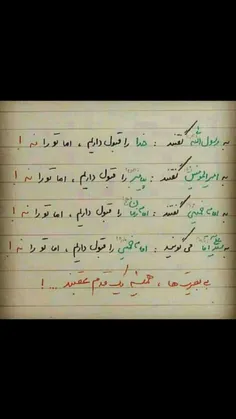 به رسول الله گفتند : خدا را قبول داریم ، اما تو را نه !
به امیرالمومنین گفتند : پیامبر را قبول داریم ، اما تو را نه !
به امام خمینی گفتند : امام زمان را قبول داریم ، اما تو را نه !
به آقا می گویند : امام خمینی را قبول داریم ، اما تو را نه !
بی بصیرت ها ، همیشه یک قدم عقبند ... !